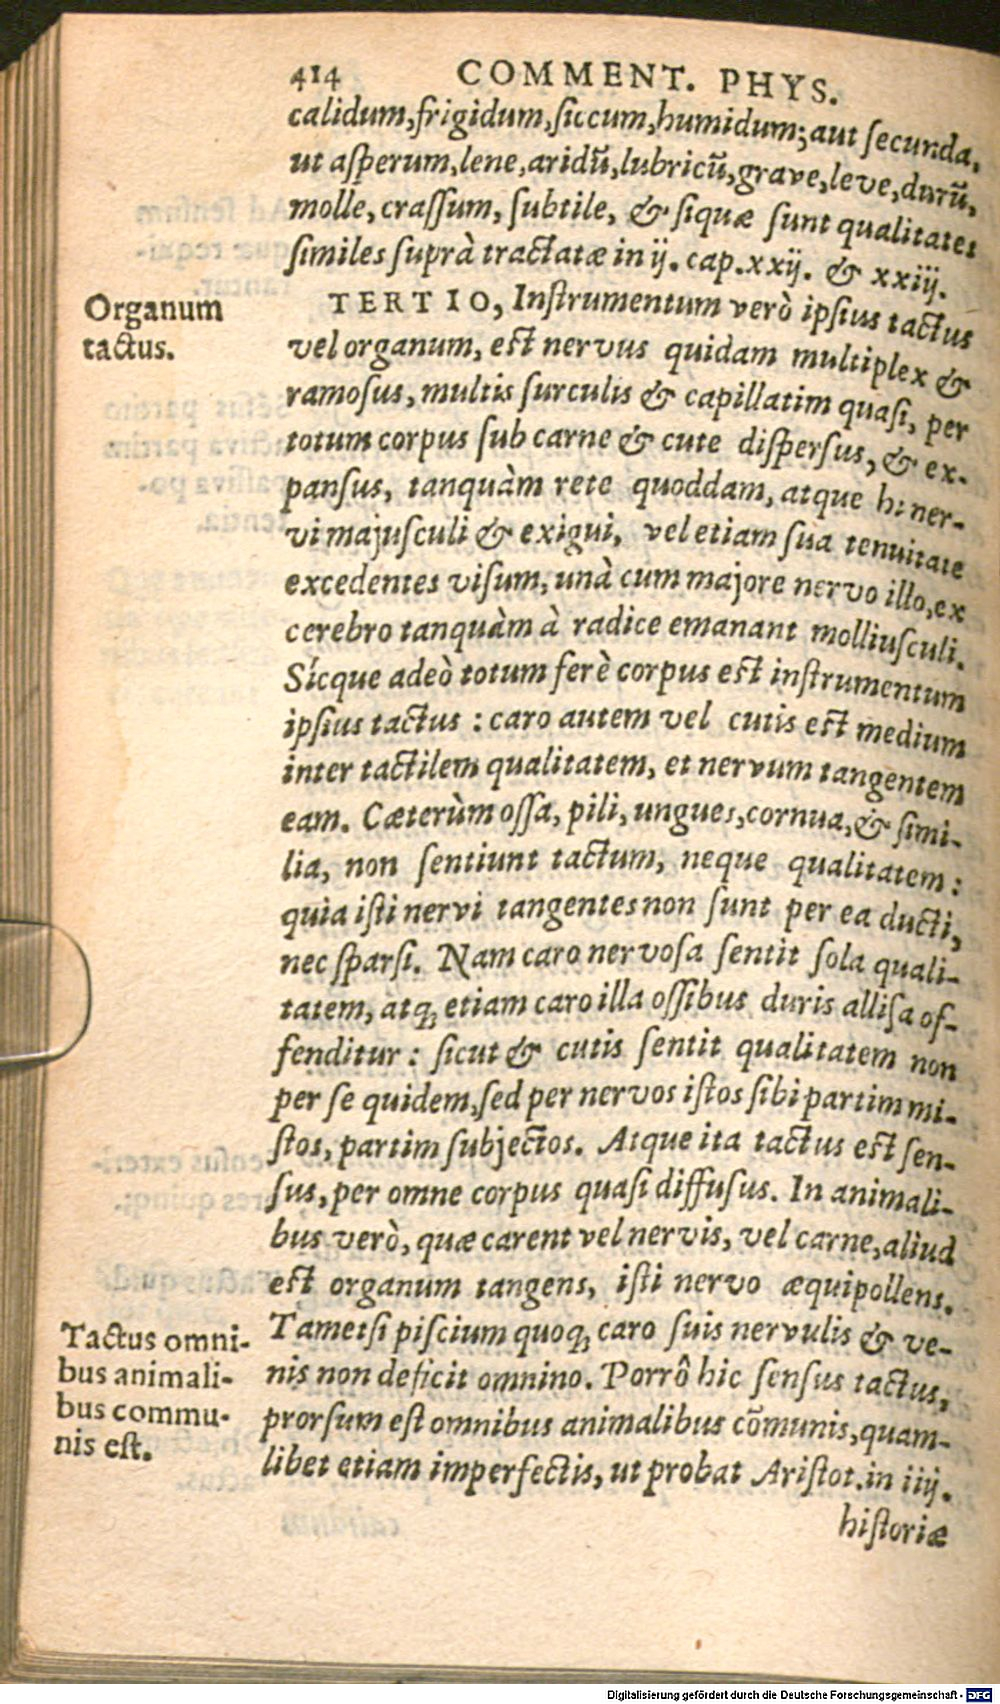 414 COMMENT. PHYS.
calidum,frigidum,siccum,humidum;aut secunda,
ut asperum,lene,aridū,lubricū,grave,leve,durū,
molle, crassum, subtile, & siquæ sunt qualitates
similes suprà tractatæ in ij. cap.xxij. & xxiij.
Organum
tactus.
TERTIO, Instrumentum verò ipsius tactus
vel organum, est nervus quidam multiplex &
ramosus, multis surculis & capillatim quasi, per
totum corpus sub carne & cute dispersus, & ex-
pansus, tanquàm rete quoddam, atque hi ner-
vi majusculi & exigui, vel etiam sua tenuitate
excedentes visum, unà cum majore nervo illo,ex
cerebro tanquàm à radice emanant molliusculi.
Sícque adeò totum ferè corpus est instrumentum
ipsius tactus : caro autem vel cutis est medium
inter tactilem qualitatem, et nervum tangentem
eam. Cæterùm ossa, pili, ungues,cornua,& simi-
lia, non sentiunt tactum, neque qualitatem :
quia isti nervi tangentes non sunt per ea ducti,
nec sparsi. Nam caro nervosa sentit sola quali-
tatem, atq; etiam caro illa ossibus duris allisa of-
fenditur : sicut & cutis sentit qualitatem non
per se quidem,sed per nervos istos sibi partim mi-
stos, partim subjectos. Atque ita tactus est sen-
sus, per omne corpus quasi diffusus. In animali-
bus verò, quæ carent vel nervis, vel carne,aliud
est organum tangens, isti nervo æquipollens.
Tametsi piscium quoq; caro suis nervulis & ve-
nis non deficit omnino. Porrô hic sensus tactus,
prorsum est omnibus animalibus cōmunis,quam-
libet etiam imperfectis, ut probat Aristot.in iiij.
Tactus omni-
bus animali-
bus commu-
nis est.
historiæ
Digitalisierung gefördert durch die Deutsche Forschungsgemeinschaft - DFG